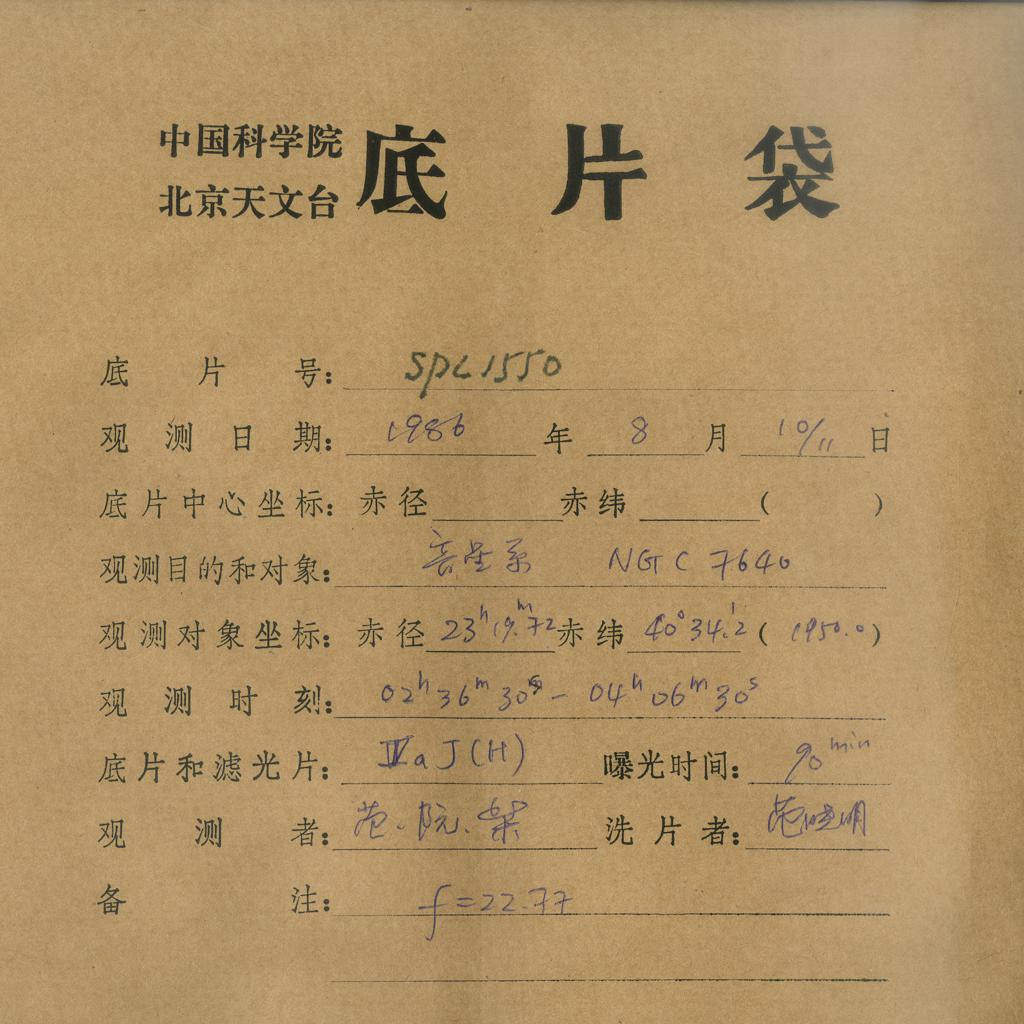 中国科学院
北京天文台
底片袋
底片号: SPL1550
观测日期: 1986 年 8 月 10/11 日
底片中心坐标: 赤径 赤纬 ( )
观测目的和对象: 星系 NGC 7640
观测对象坐标: 赤径 23h19.m72 赤纬 40°34.'2 ( 1950.0 )
观测时刻: 02h 36m 30s - 04h 06m 30s
底片和滤光片: aJ(H) 曝光时间: 90min
观测者: 范.阮.柴 洗片者: 范晓明
备注: f=22.77